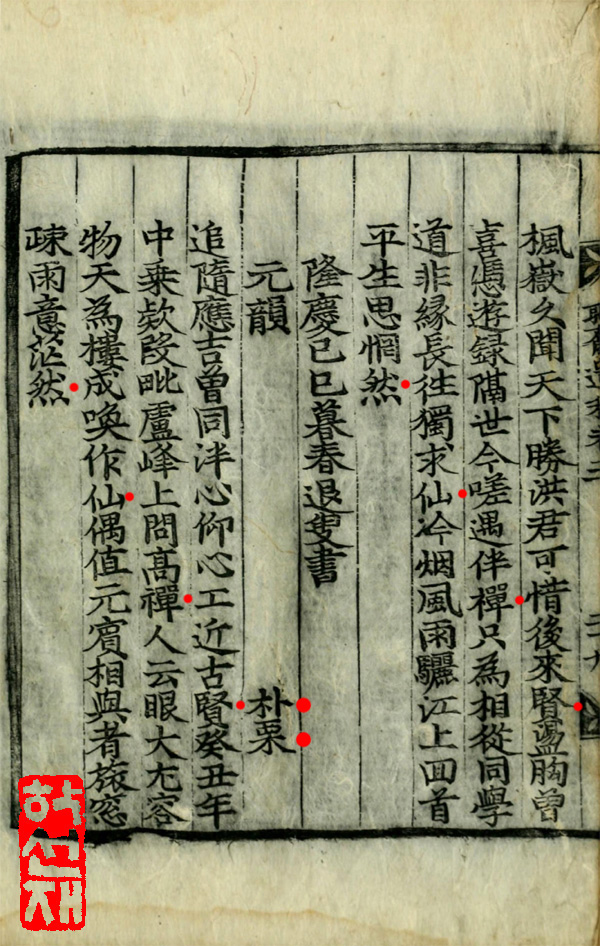 楓嶽久聞天下勝洪君可惜後來賢盪胸曾
喜憑遊録隔世今嗟遇伴禪只為相從同學
道非縁長徃獨求仙冷烟風雨驪江上回首
平生思惘然
隆慶己巳暮春退叟書
元韻 朴栗
追隨應吉曽同泮心仰心工近古賢癸丑年
中乗欵段毗盧峰上問高禪人云眼大尤容
物天為樓成喚作仙偶值元賓相與者旅窓
疎雨意茫然
학선재